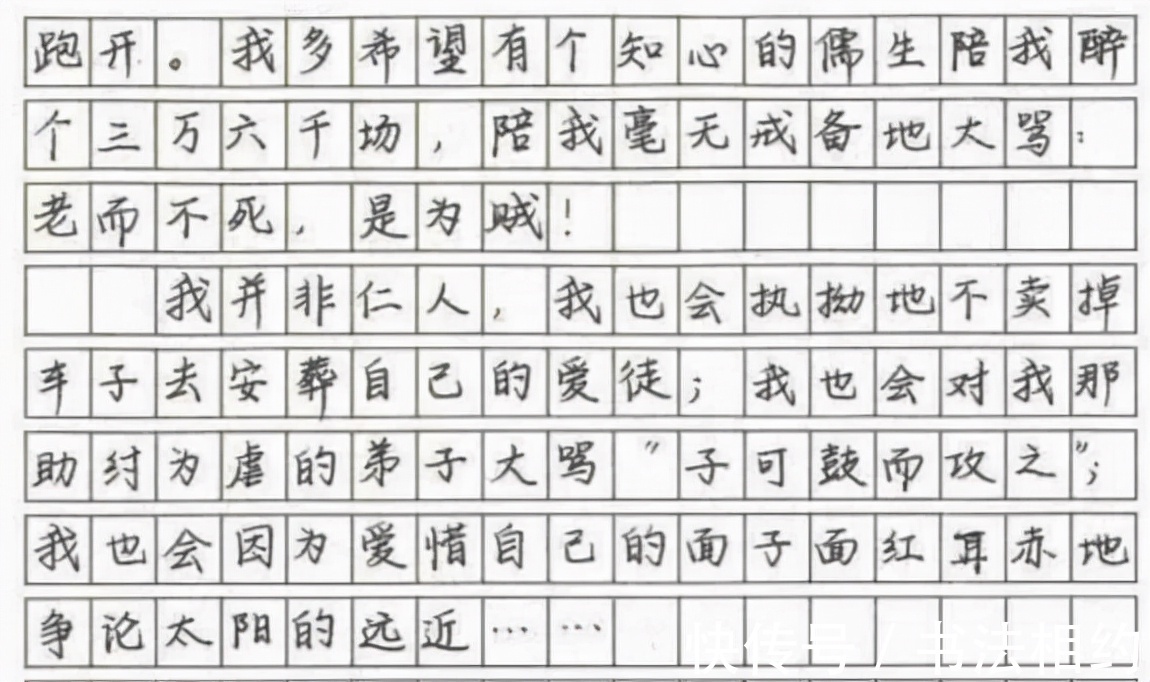 跑开。我多希望有个知心的儒生陪我醉
个三万六千场，陪我毫无戒备地大骂：
老而不死，是为贼！
我并非仁人，我也会执拗地不卖掉
车子去安葬自己的爱徒；我也会对我那
助纣为虐的弟子大骂"子可鼓而攻之"；
我也会因为爱惜自己的面子面红耳赤地
争论太阳的远近……
快传号/书法相约